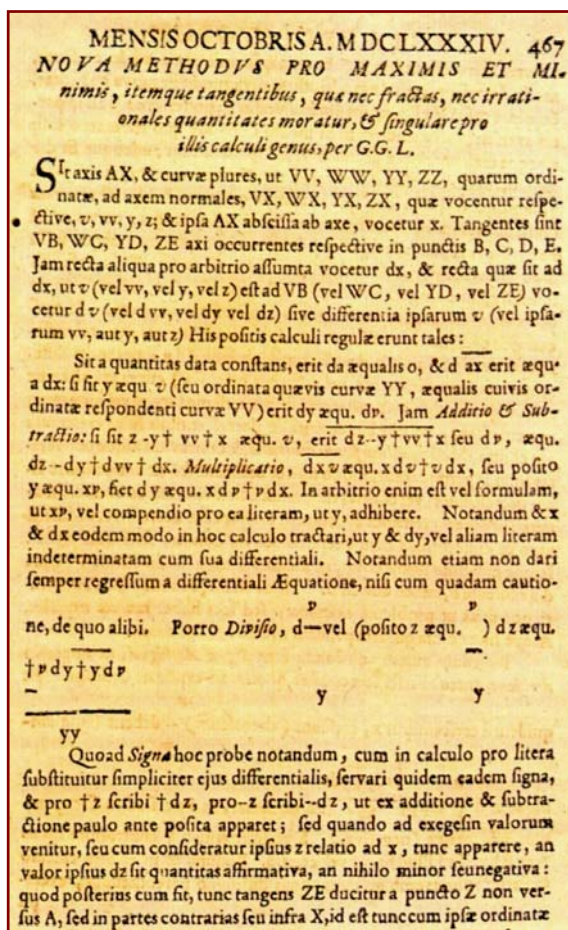 MENSIS OCTOBRIS A. M DCLXXXIV. 467
NOVA METHODVS PRO MAXIMIS ET MI-
nimis, itemque tangentibus, quæ nec fractas, nec irrati-
onales quantitates moratur, & singulare pro
illis calculi genus, per G.G. L.
SIt axis AX, & curvæ plures, ut VV, WW, YY, ZZ, quarum ordi-
natæ, ad axem normales, VX, WX, YX, ZX, quæ vocentur respe-
ctive, v, vv, y, z; & ipsa AX abscissa ab axe, vocetur x. Tangentes sint
VB, WC, YD, ZE axi occurrentes respective in punctis B, C, D, E.
Jam recta aliqua pro arbitrio assumta vocetur dx, & recta quæ sit ad
dx, ut v (vel vv, vel y, vel z) est ad VB (vel WC, vel YD, vel ZE) vo-
cetur dv (vel d vv, vel dy vel dz) sive differentia ipsarum v (vel ipsa-
rum vv, aut y, aut z) His positis calculi regulæ erunt tales:
Sit a quantitas data constans, erit da æqualis 0, & d ax erit æqu.
a dx: si sit y æqu v (seu ordinata quævis curvæ YY, æqualis cuivis or-
dinatæ respondenti curvæ VV) erit dy æqu. dv. Jam Additio & Sub-
tractio: si sit z -y† vv† x æqu. v, erit dz--y†vv†x seu dv, æqu.
dz--dy†dvv† dx. Multiplicatio, dxv æqu. x dv†vdx, seu posito
y æqu. xv, fiet dy æqu. x dv†vdx. In arbitrio enim est vel formulam,
ut xv, vel compendio pro ea literam, ut y, adhibere. Notandum & x
& dx eodem modo in hoc calculo tractari, ut y & dy, vel aliam literam
indeterminatam cum sua differentiali. Notandum etiam non dari
semper regressum a differentiali Æquatione, nisi cum quadam cautio-
v v
ne, de quo alibi. Porro Divisio, d—vel (posito z æqu. ) dz æqu.
†vdy†ydv
y y
yy
Quoad Signa hoc probe notandum, cum in calculo pro litera
substituitur simpliciter ejus differentialis, servari quidem eadem signa,
& pro †z scribi †dz, pro--z scribi--dz, ut ex additione & subtra-
ctione paulo ante posita apparet; sed quando ad exegesin valorum
venitur, seu cum consideratur ipsius z relatio ad x, tunc apparere, an
valor ipsius dz sit quantitas affirmativa, an nihilo minor seu negativa:
quod posterius cum fit, tunc tangens ZE ducitur a puncto Z non ver-
sus A, sed in partes contrarias seu infra X, id est tunc cum ipsæ ordinatæ